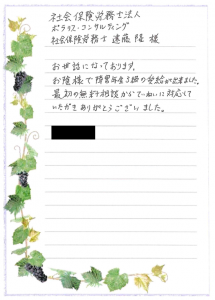 社会保険労務士法人
ポラリス・コンサルティング
社会保険労務士 遠藤隆 様
お世話になっております。
お陰様で障害年金3級の受給が出来ました。
最初の無料相談からていねいに対応して
いただきありがとうございました。